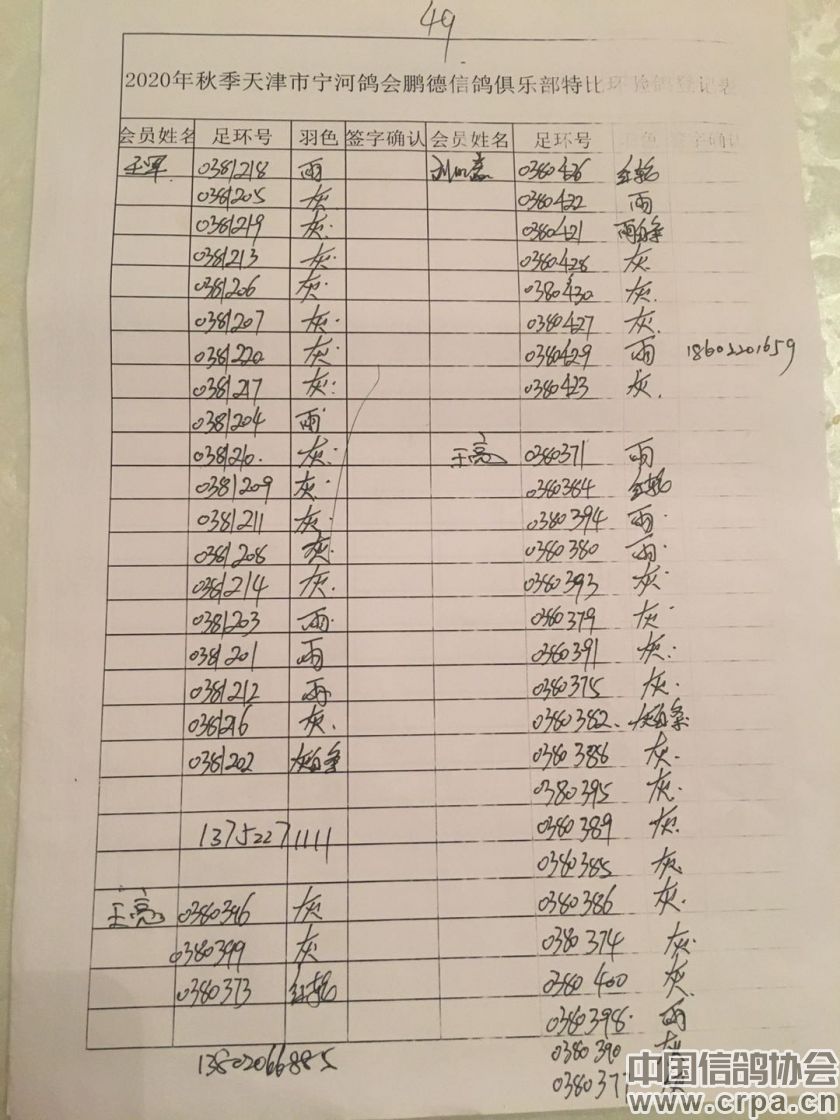 49
2020年秋季天津市宁河鸽会鹏德信鸽俱乐部特比环验鸽登记表
会员姓名 足环号 羽色 签字确认 会员姓名 足环号 羽色 签字确认
王军 0381218 雨 0380426 红轮
0381205 灰 0380422 雨
0381219 灰 0380421 雨白条
0381213 灰 0380428 灰
0381206 灰 0380430 灰
0381207 灰 0380427 灰
0381220 灰 0380429 雨 18602201659
0381217 灰 0380423 灰
0381204 雨
0381210 灰 王亮 0380371 雨
0381209 灰 0380384 红轮
0381211 灰 0380394 雨
0381208 灰 0380380 雨
0381214 灰 0380393 灰
0381203 雨 0380379 灰
0381201 雨 0380391 灰
0381212 雨 0380375 灰
0381216 灰 0380382 灰白条
0381202 灰白条 0380388 灰
0380395 灰
13752271111 0380389 灰
0380385 灰
王亮 0380396 灰 0380386 灰
0380399 灰 0380374 灰
0380373 红轮 0380400 灰
0380398 雨
13802066885 0380390
0380377
中国信鸽协会
www.crpa.cn